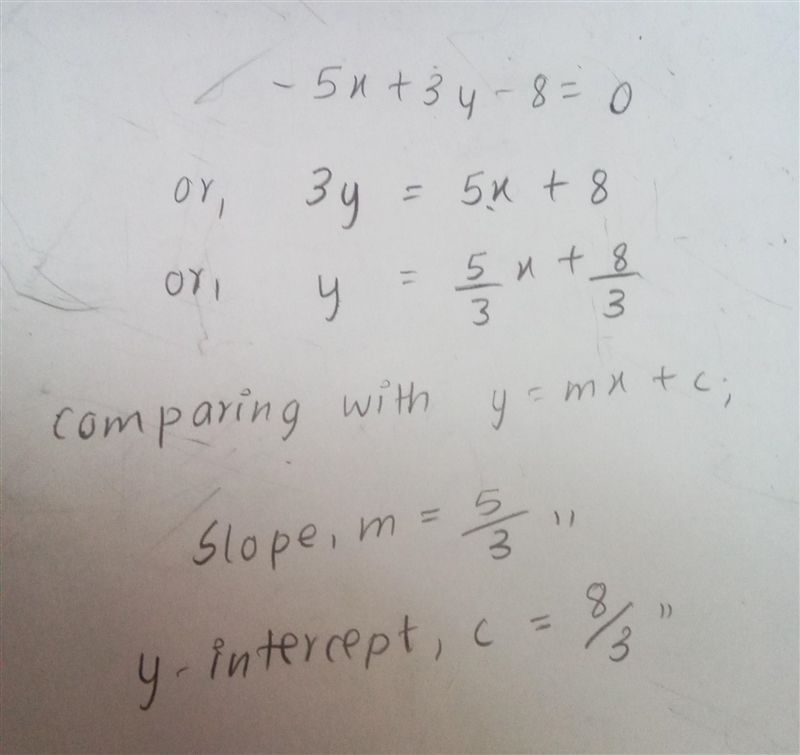 - 5x + 3y - 8 = 0
or, 3y = 5x + 8
or, y = 5/3 x + 8/3
comparing with y = mx + c;
Slope, m = 5/3 "
y-intercept, c = 8/3 "